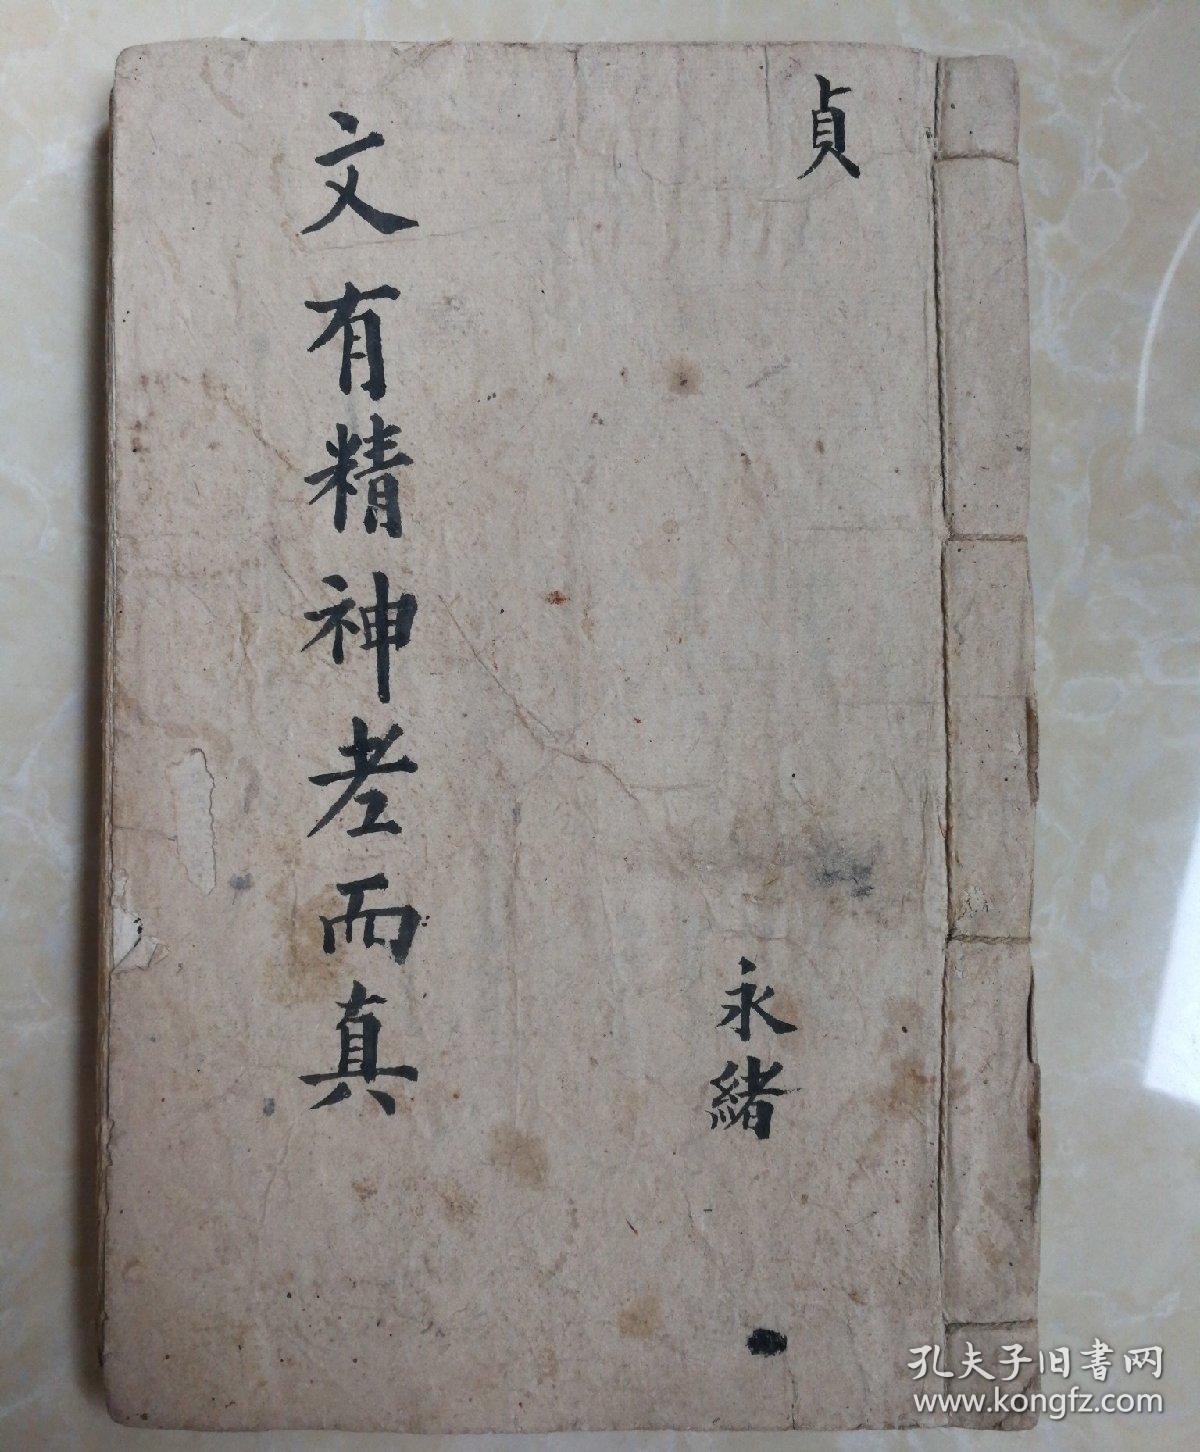 貞
永緒
文有精神老而真
孔夫子旧書网
www.kongfz.com